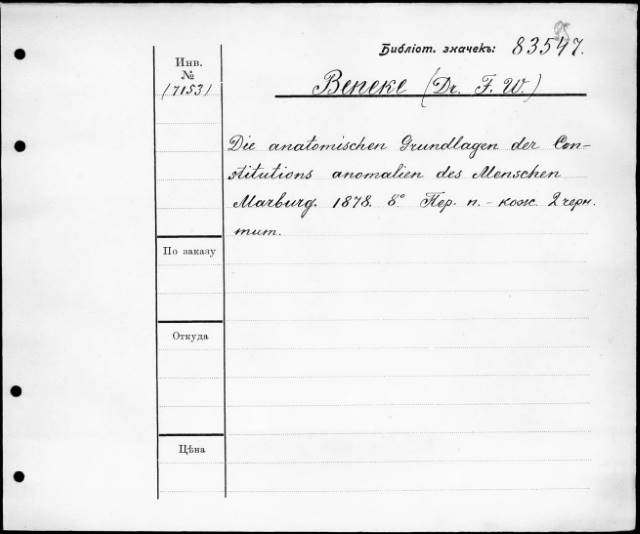 Библіот. значекъ: 83547.
Инв.
№
171531
Beneke (Dr. F. W.)
Die anatomischen Grundlagen der Con-
stitutions anomalien des Menschen
Marburg. 1878. 8° Пер. п.-кож. 2 черн.
тит.
По заказу
Откуда
Цѣна